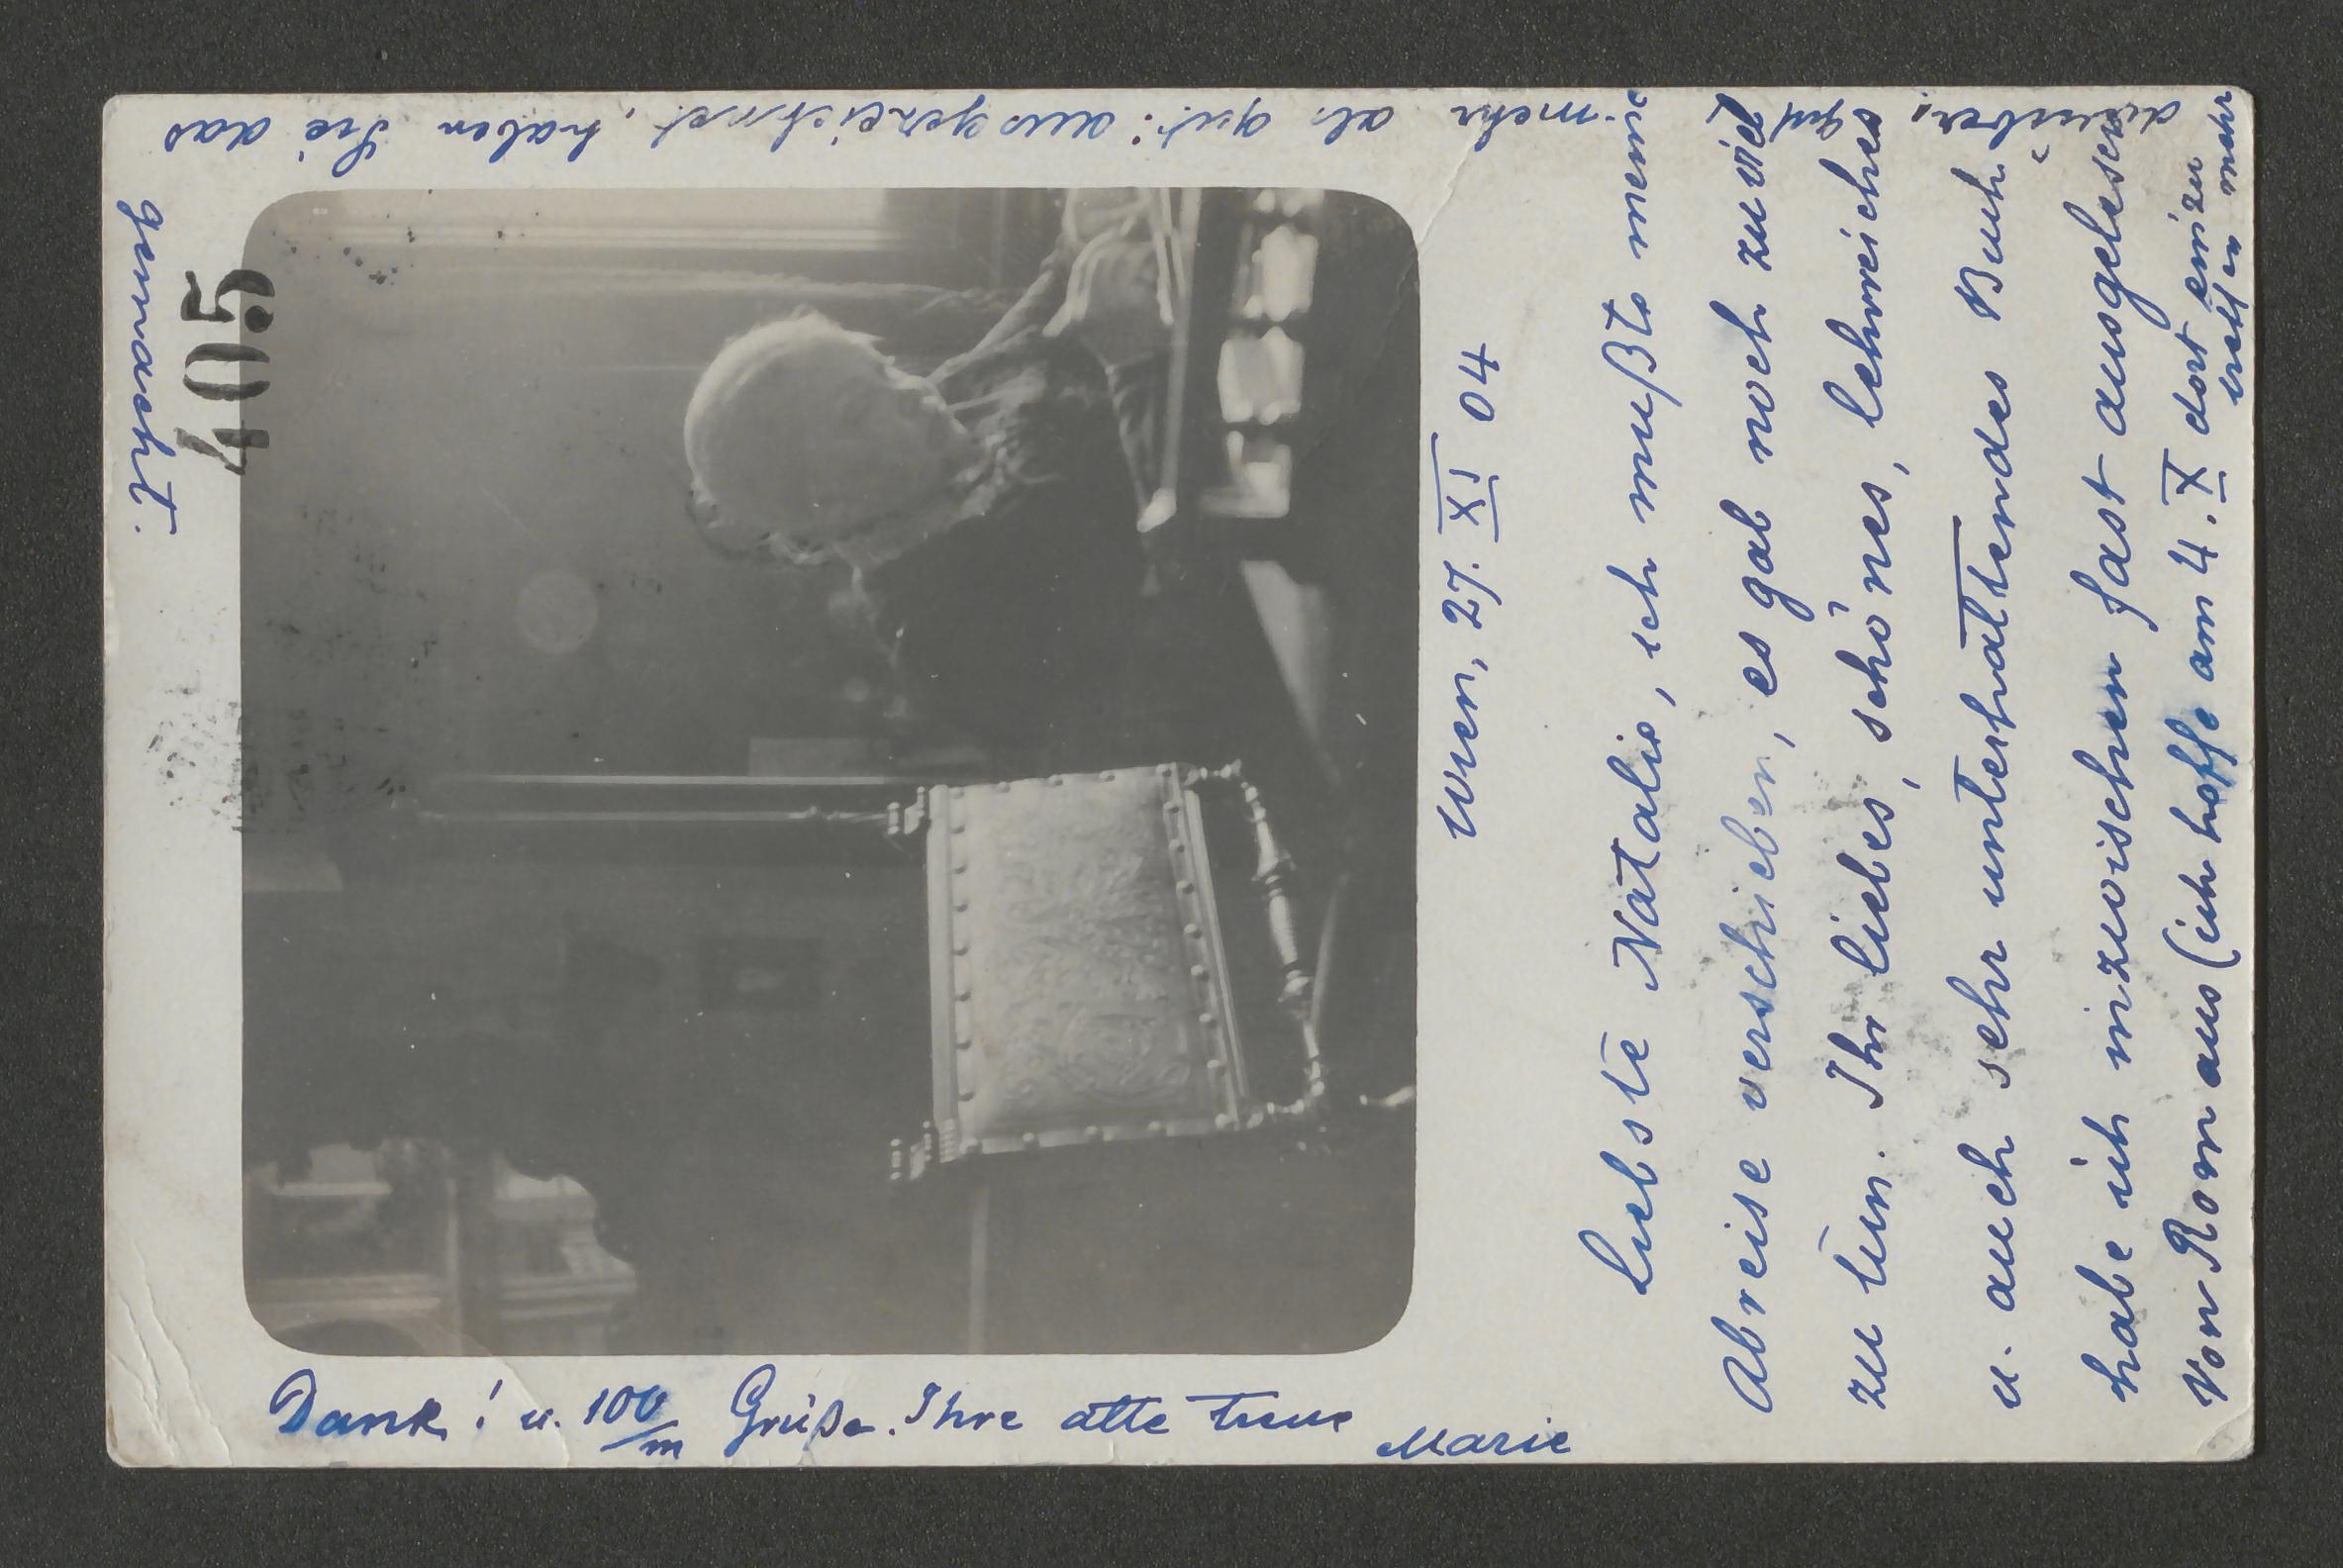 Wien, 27. XI 04
Liebste Natalie, ich mußte meine
Abreise verschieben, es gab noch zu viel
zu tun. Ihr liebes, schönes, lehrreiches
u. auch sehr unterhaltendes Buch
habe ich inzwischen fast ausgelesen
Von Rom aus (ich hoffe am 4. X dort einzu
treffen mehr
darüber, gut
mehr als gut: ausgezeichnet, haben Sie das
gemacht.
Dank! u. 100/m Grüße. Ihre alte treue
Marie
405